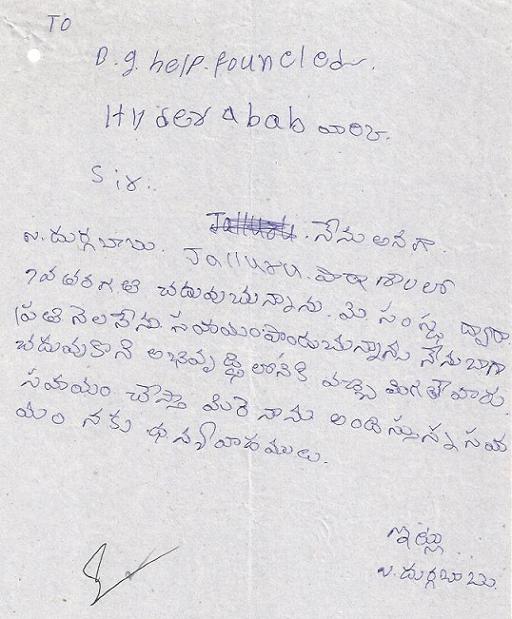 TO
B.g. help. founcled.
Hyderabab వారికి.
Sir..
నేను అనగా.
న.దుర్గబాబు. Jalluru. పాఠశాలలో
7వ తరగతి చదువుచున్నాను. మీ సంస్థ ద్వారా
ప్రతి నెల నేను సహయంపొందుచున్నాను నేను బాగా
చదువుకొని అభివృద్ధిలొనికి వచ్చి మిగతా వారు
సహయం చేస్తా మీరె నాను అందిస్తున్న సహ
యం నకు ధన్యవాదములు.
ఇట్లు
న.దుర్గబాబు.